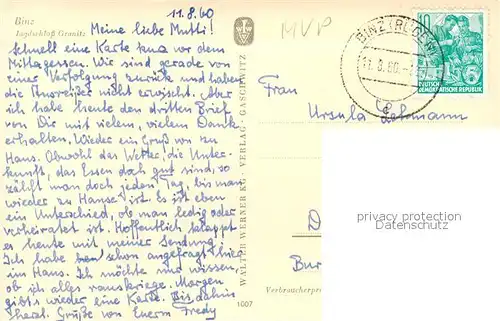 Binz
Jagdschloß Granitz
11.8.60
MVP
Meine liebe Mutti!
Schnell eine Karte kurz vor dem
Mittagessen. Wir sind gerade von
einer Verfolgung zurück und haben
die Ausreißer nicht erwischt. Aber
ich habe heute den dritten Brief
von Dir mit vielem, vielem Dank
erhalten. Wieder ein Gruß von zu
Haus. Obwohl das Wetter, die Unter-
kunft, das Essen doch gut sind, so
zählt man doch jeden Tag, bis man
wieder zu Hause ist. Es ist eben
ein Unterschied, ob man ledig oder
verheiratet ist. Hoffentlich klappt
es heute mit meiner Sendung.
Ich habe schon angefragt hier
im Haus. Ich möchte nur wissen,
ob ich alles rauskriege. Morgen
gibt's wieder eine Karte. Bis dahin
herzl. Grüße von Euerm Fredy
WALTER WERNER KG · VERLAG · GASCHWITZ
1007
BINZ (RÜGEN)
11.8.60
10
DEUTSCHE
DEMOKRATISCHE REPUBLIK
Frau
Ursula Lehmann
D
Bur
Verbraucherpre
propriety protection
www.oldthing.com